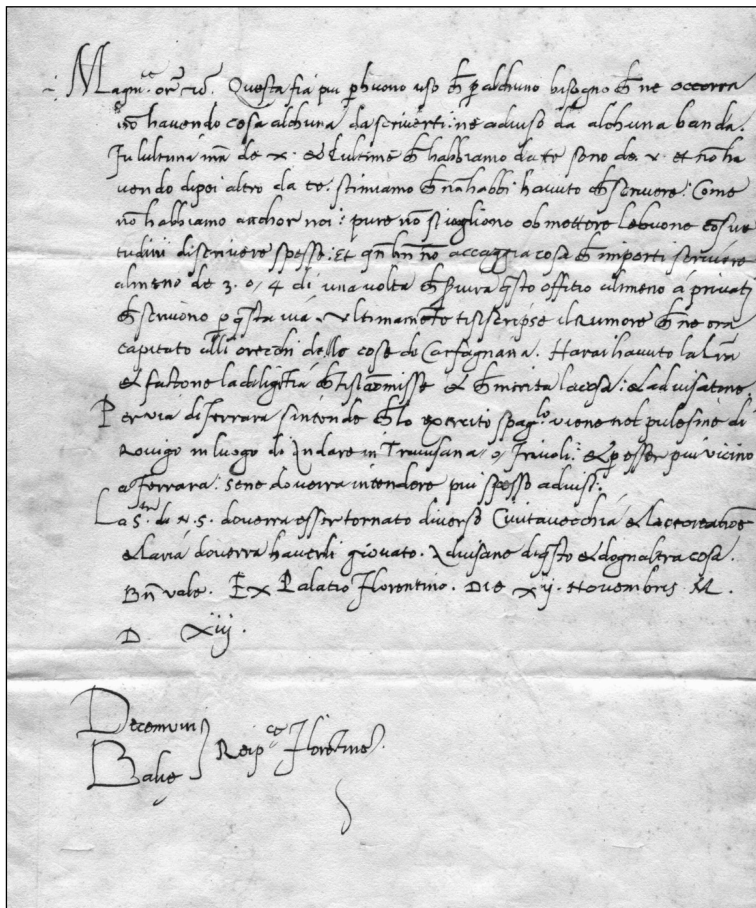 Magn.ce or.r nr. Questa fia piu p buono uso ch p alchuno bisogno ch ne occorra
nō havendo cosa alchuna da scriverti: ne adviso da alchuna banda.
de x. et lultime ch habbiamo da te sono de v. et nō ha
vendo dipoi altro da te. stimiamo ch nō habbi havuto ch scrivere: Come
nō habbiamo anchor noi: pure nō si vogliono obmettere le buone cōsue
tudini di scrivere spesso: Et nō accaggia cosa ch importi scrivere
almeno de 3. o, 4 di una volta ch q̄sto offitio almeno a privati
ch scrivono p q̄sta via. Ultimamēte ti si scripse il Rumore ch ne era
capitato alli orecchi delle cose de Carfagnana. Harai havuto la lrā
et factone la diligētia ch ti si cōmisse et ch merita la cosa: et advisatone.
Per via di Ferrara s intende ch lo exercito spag.lo viene nel pulesine di
Rovigo in luogo di andare in Trivisana, o, Frivoli: et p esser piu vicino
a Ferrara: se ne doverra intendere piu spesso advisi:
La S.tà di N. S. doverra esser tornato di verso Civitavecchia et la recreatiōe
et laria doverra haverli giovato. Advisane di q̄sto et dognaltra cosa.
Bn̄ vale. Ex Palatio Florentino. Die xij. Novembris M.
D xiij.
Decemviri
Balie
Reip.ce Florentine.